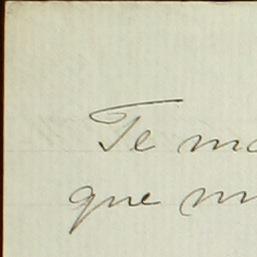 Te ma
que m